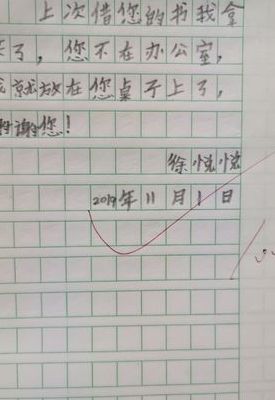 上次借您的书我拿
来了，您不在办公室，
我就放在您桌子上了，
谢谢您！
徐悦悦
2019年11月1日